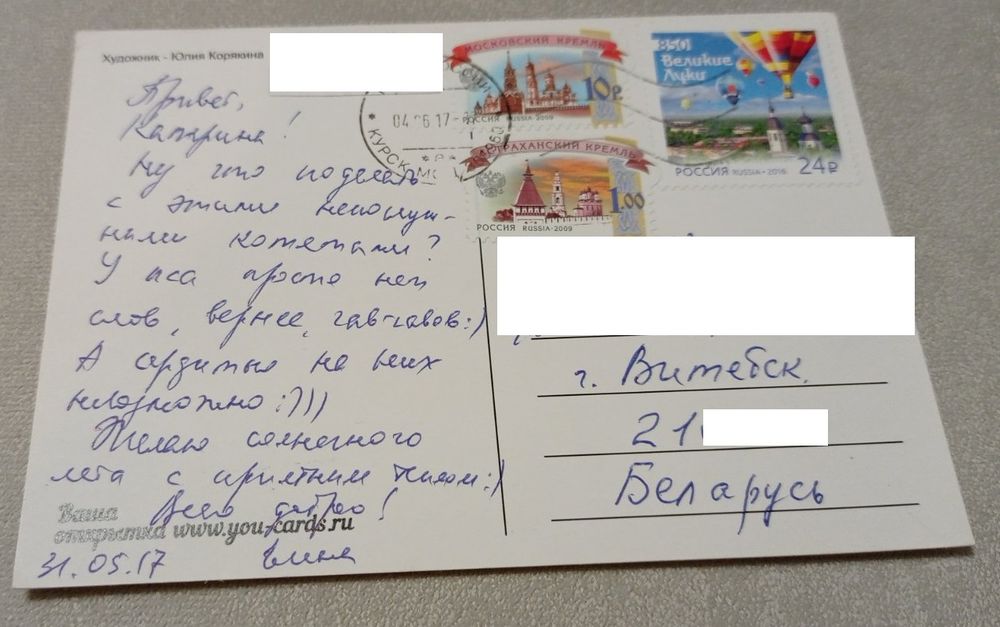 Художник - Юлия Корякина
Привет,
Катарина!
Ну что поделать
с этими непослуш-
ными котятами?
У пса просто нет
слов, вернее, гав-гавов:)
А сердиться на них
невозможно:)))
Желаю солнечного
лета с приятным теплом:)
Всего доброго!
Ваша
открытка www.you-cards.ru
31.05.17
МОСКОВСКИЙ КРЕМЛЬ
10₽
РОССИЯ RUSSIA·2009
АСТРАХАНСКИЙ КРЕМЛЬ
1.00
РОССИЯ RUSSIA·2009
850!
Великие
Луки
РОССИЯ RUSSIA·2016 24₽
04 06 17
КУРСК
г. Витебск
21
Беларусь